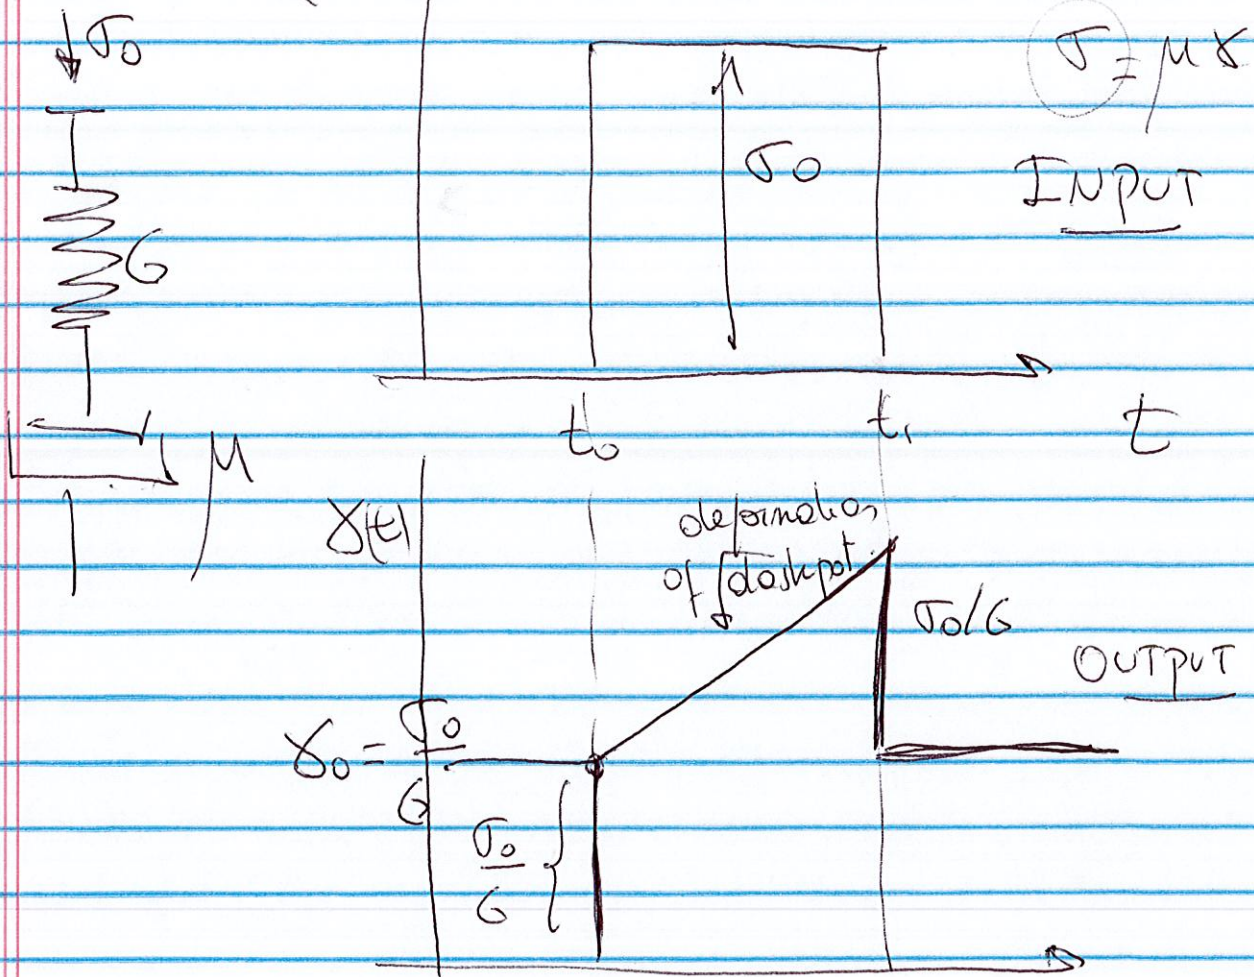 σ₀
σ = μγ
σ₀
INPUT
G
t₀
t₁
t
μ
γ(t)
deformation
of dashpot
σ₀/G
OUTPUT
γ₀ = σ₀/G
σ₀/G